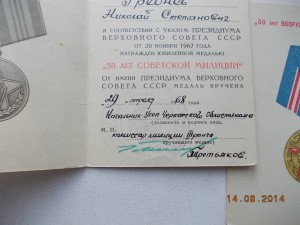 Николай Степанович
В СООТВЕТСТВИИ С УКАЗОМ ПРЕЗИДИУМА
ВЕРХОВНОГО СОВЕТА СССР
ОТ 20 НОЯБРЯ 1967 ГОДА
НАГРАЖДЕН ЮБИЛЕЙНОЙ МЕДАЛЬЮ
"50 ЛЕТ СОВЕТСКОЙ МИЛИЦИИ"
ОТ ИМЕНИ ПРЕЗИДИУМА ВЕРХОВНОГО
СОВЕТА СССР МЕДАЛЬ ВРУЧЕНА
29 68 года
Начальник Черкасского
(должность и подпись лица,
М. П.
комиссар милиции 3 ранга
вручившего медаль)
Третьяков.
"50 ЛЕТ ВООРУ
14.08.2014